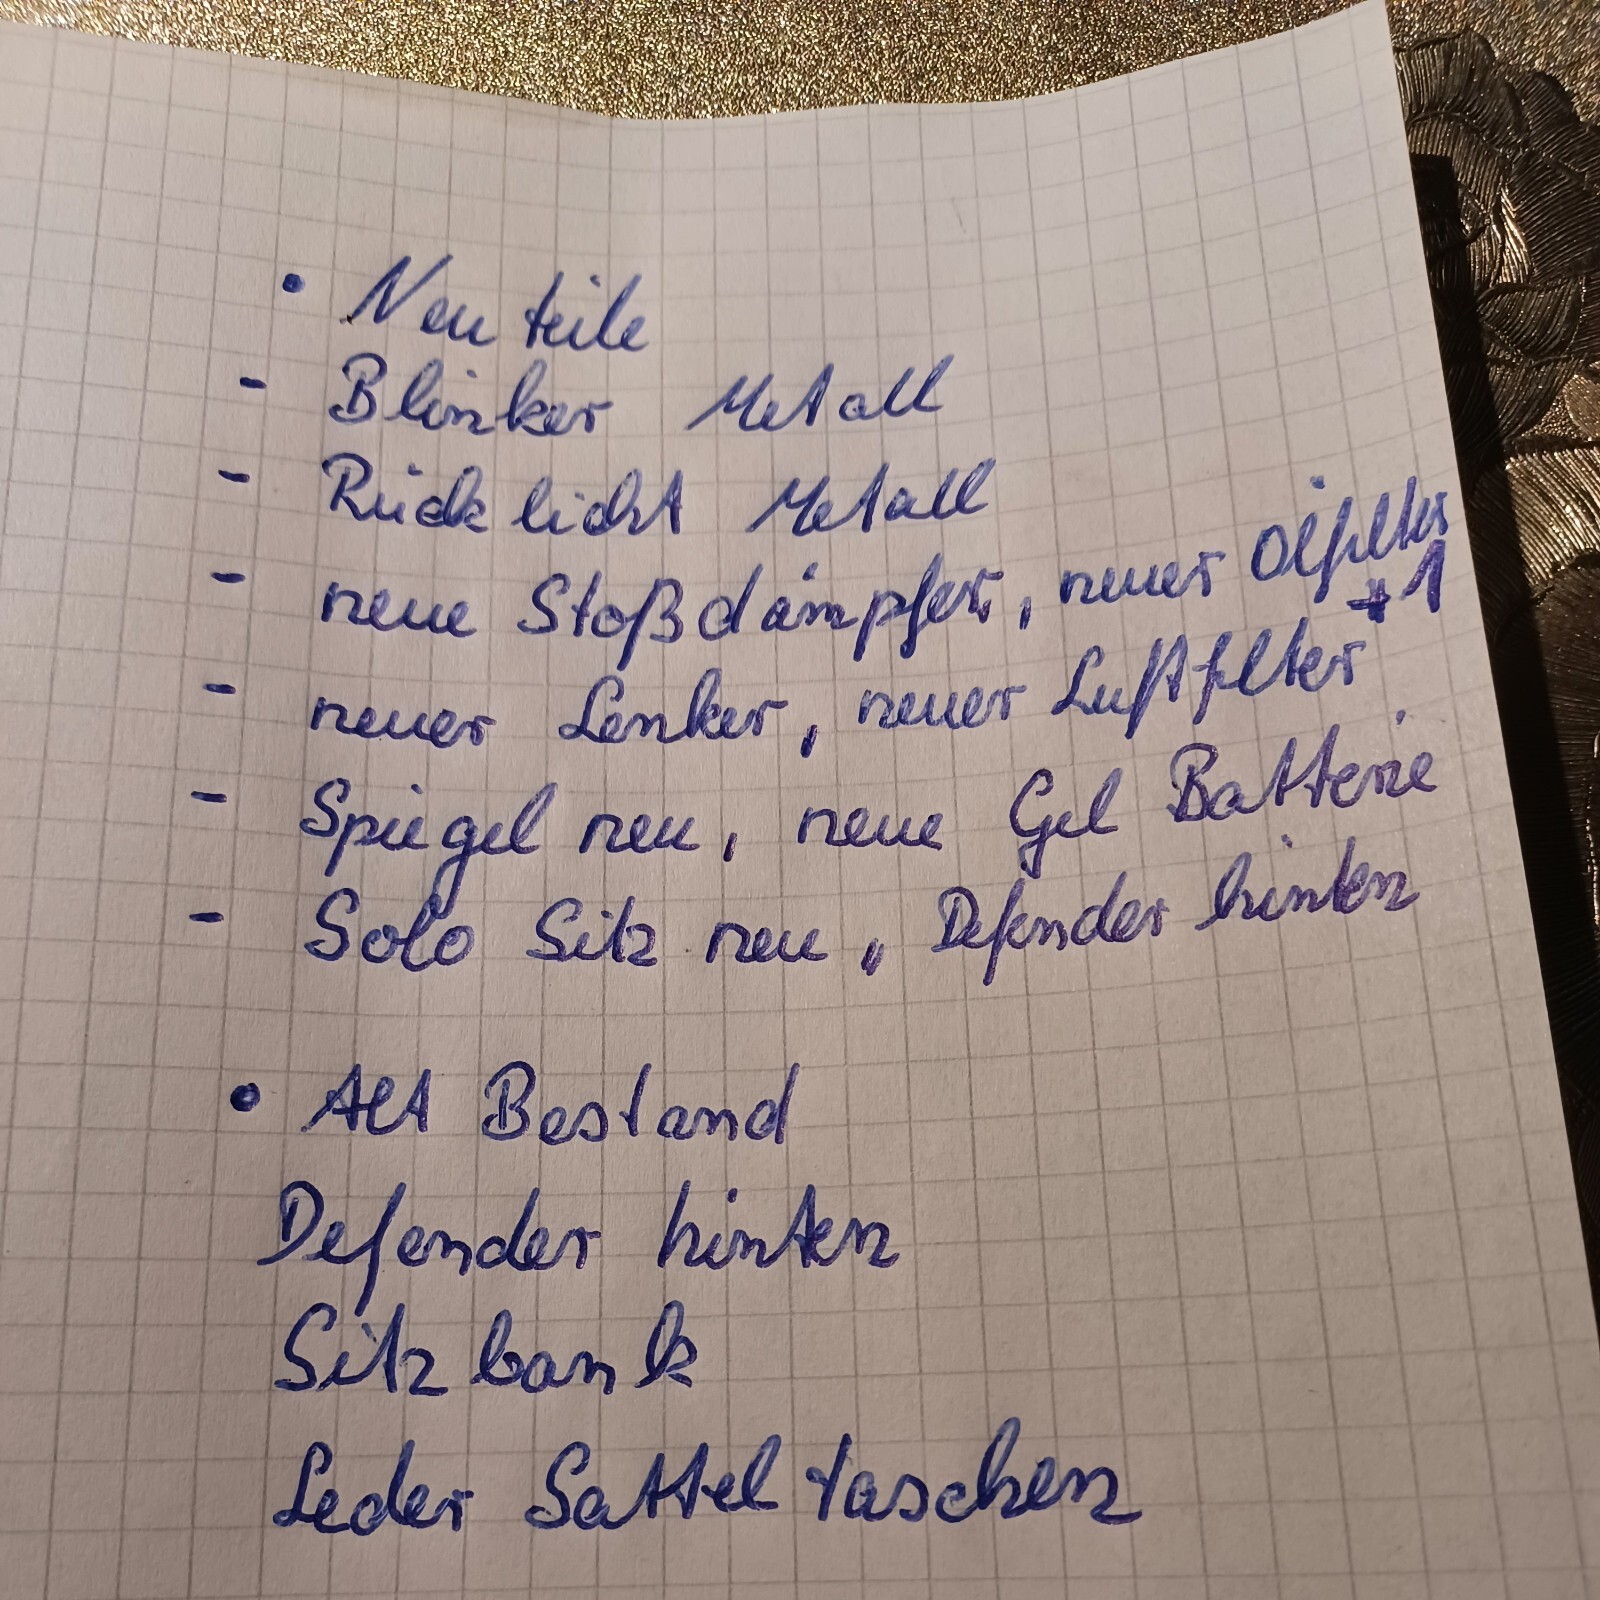 • Neuteile
- Blinker Metall
- Rücklicht Metall
- neue Stoßdämpfer, neuer Ölfilter +1
- neuer Lenker, neuer Luftfilter
- Spiegel neu, neue Gel Batterie
- Solo Sitz neu, Defender hinten
• Alt Bestand
Defender hinten
Sitzbank
Leder Satteltaschen